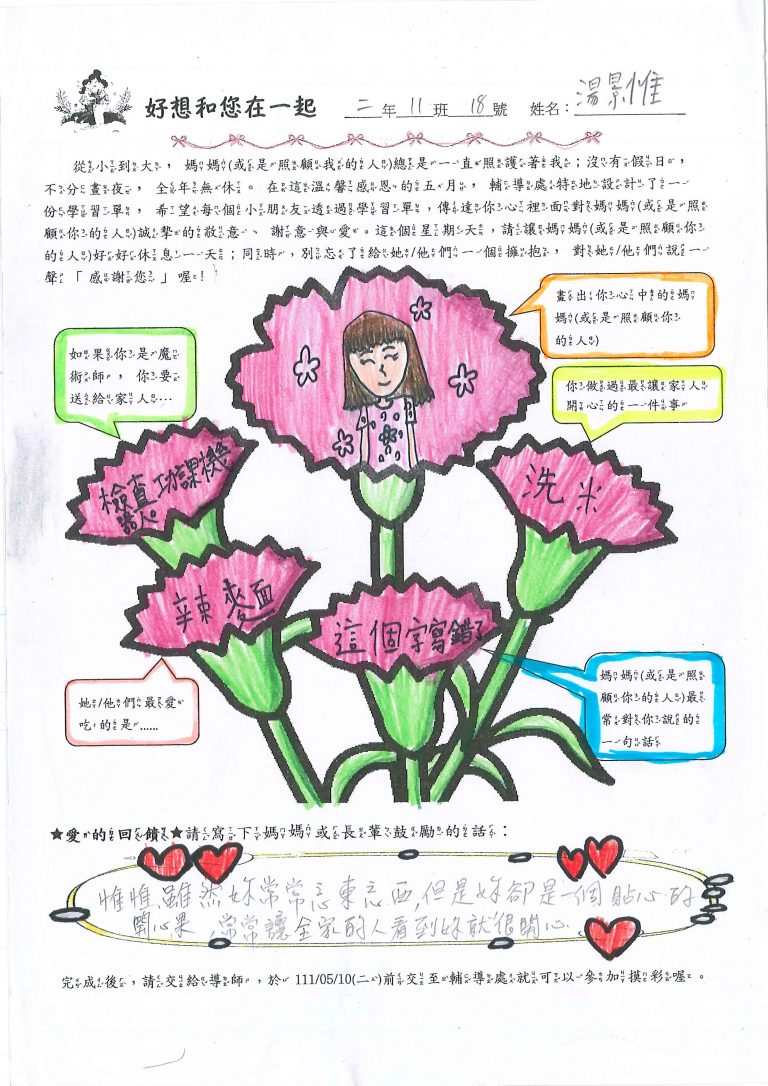 好想和您在一起 二年11班18號 姓名：湯景惟
從小到大，媽媽(或是照顧我的人)總是一直照護著我；沒有假日，
不分晝夜，全年無休。在這溫馨感恩的五月，輔導處特地設計了一
份學習單，希望每個小朋友透過學習單，傳達你心裡面對媽媽(或是照
顧你的人)誠摯的敬意、謝意與愛。這個星期天，請讓媽媽(或是照顧你
的人)好好休息一天；同時，別忘了給她/他們一個擁抱，對她/他們說一
聲「感謝您」喔！
畫出你心中的媽
媽(或是照顧你
的人)
如果你是魔
術師，你要
送給家人…
你做過最讓家人
開心的一件事
檢查功課機
器人。
洗米
辣麵
這個字寫錯了
她/他們最愛
吃的是……
媽媽(或是照
顧你的人)最
常對你說的
一句話
★愛的回饋★請寫下媽媽或長輩鼓勵的話：
惟惟,雖然妳常常忘東忘西,但是妳卻是一個貼心的
開心果,常常讓全家的人看到妳就很開心.
完成後，請交給導師，於 111/05/10(二)前交至輔導處就可以參加摸彩喔。